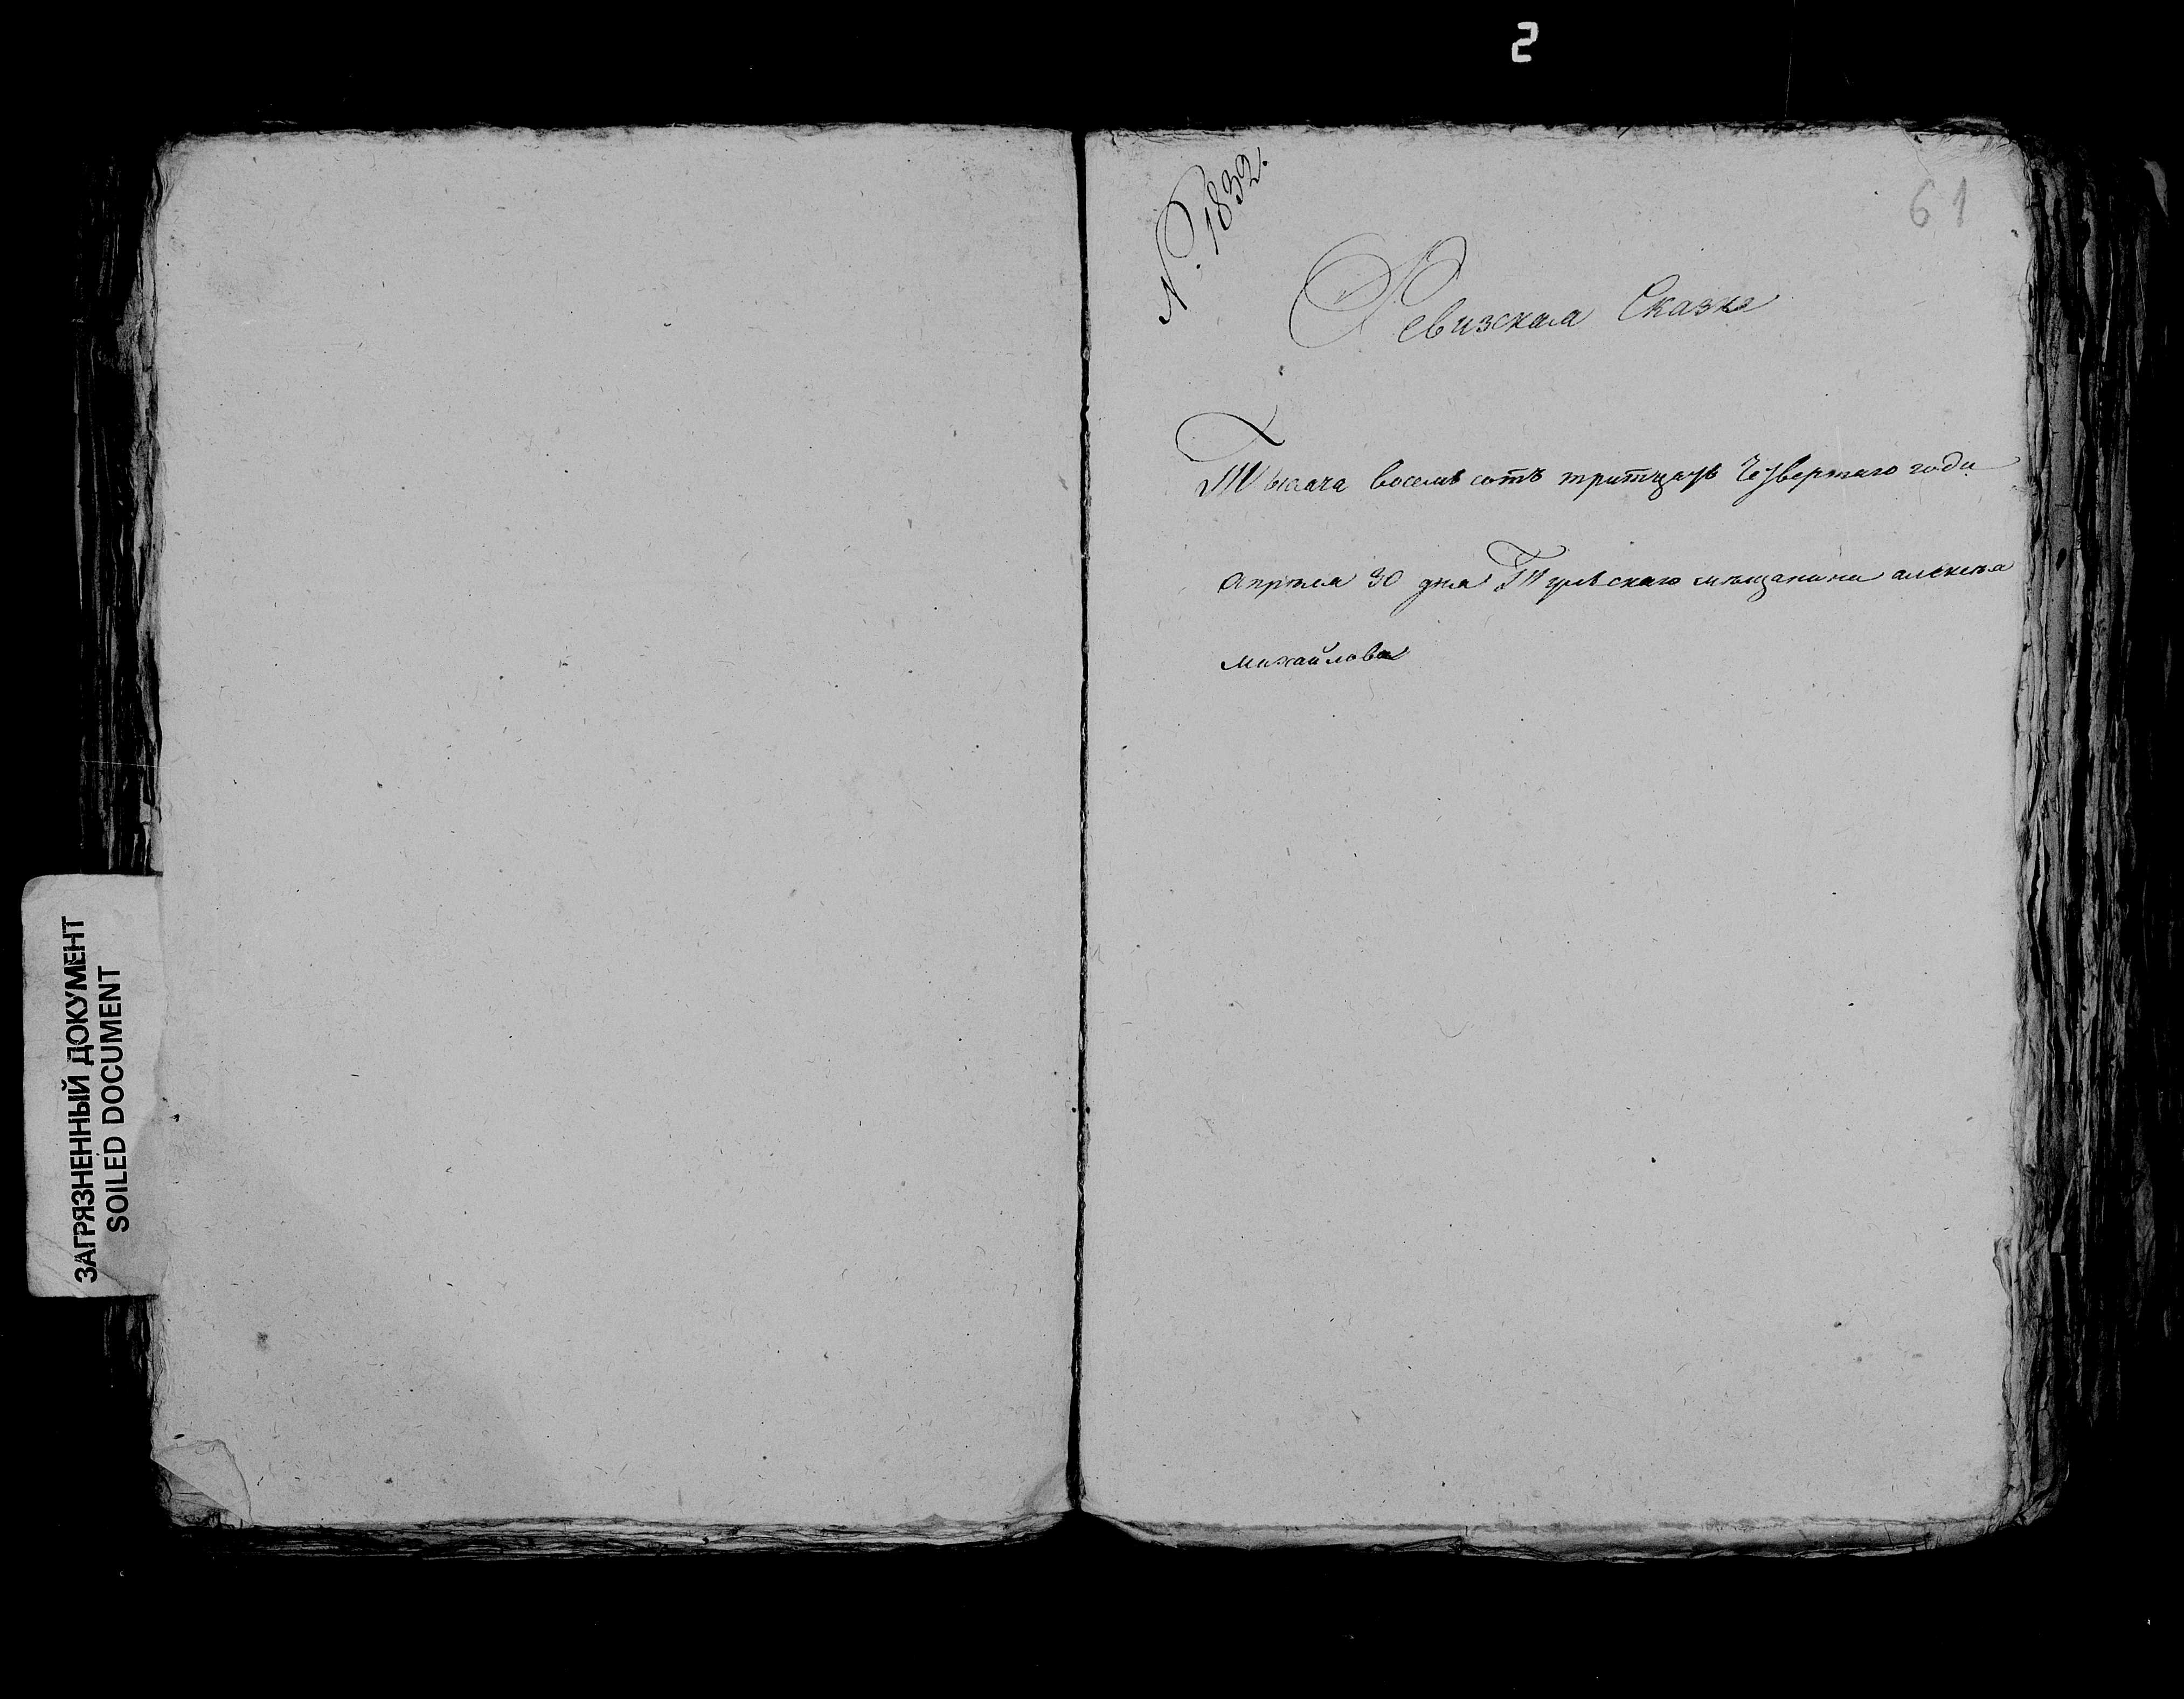 2
ЗАГРЯЗНЕННЫЙ ДОКУМЕНТ
SOILED DOCUMENT
№. 1832.
61
Ревизская Сказка
Тысяча восемь сотъ тритцать Четвертаго года
Апреля 30 дня Тульскаго мѣщанина алексѣя
михайлова